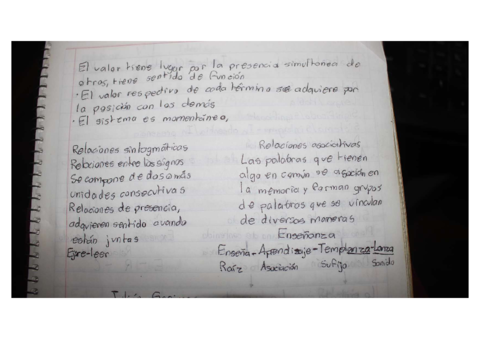 El valor tiene lugar por la presencia simultanea de
otros, tiene sentido de función
• El valor respectivo de cada término se adquiere por
la posición con los demás
• El sistema es momentáneo,
Relaciones sintagmáticas
Relaciones entre los signos
Se compone de dos o más
unidades consecutivas
Relaciones de presencia,
adquieren sentido cuando
están juntas
Ej: re-leer
Relaciones asociativas
Las palabras que tienen
algo en común se asocian en
la memoria y forman grupos
de palabras que se vinculan
de diversas maneras
Enseñanza
Enseña - Aprendizaje - Templanza - Lanza
Raíz Asociación Sufijo Sonido